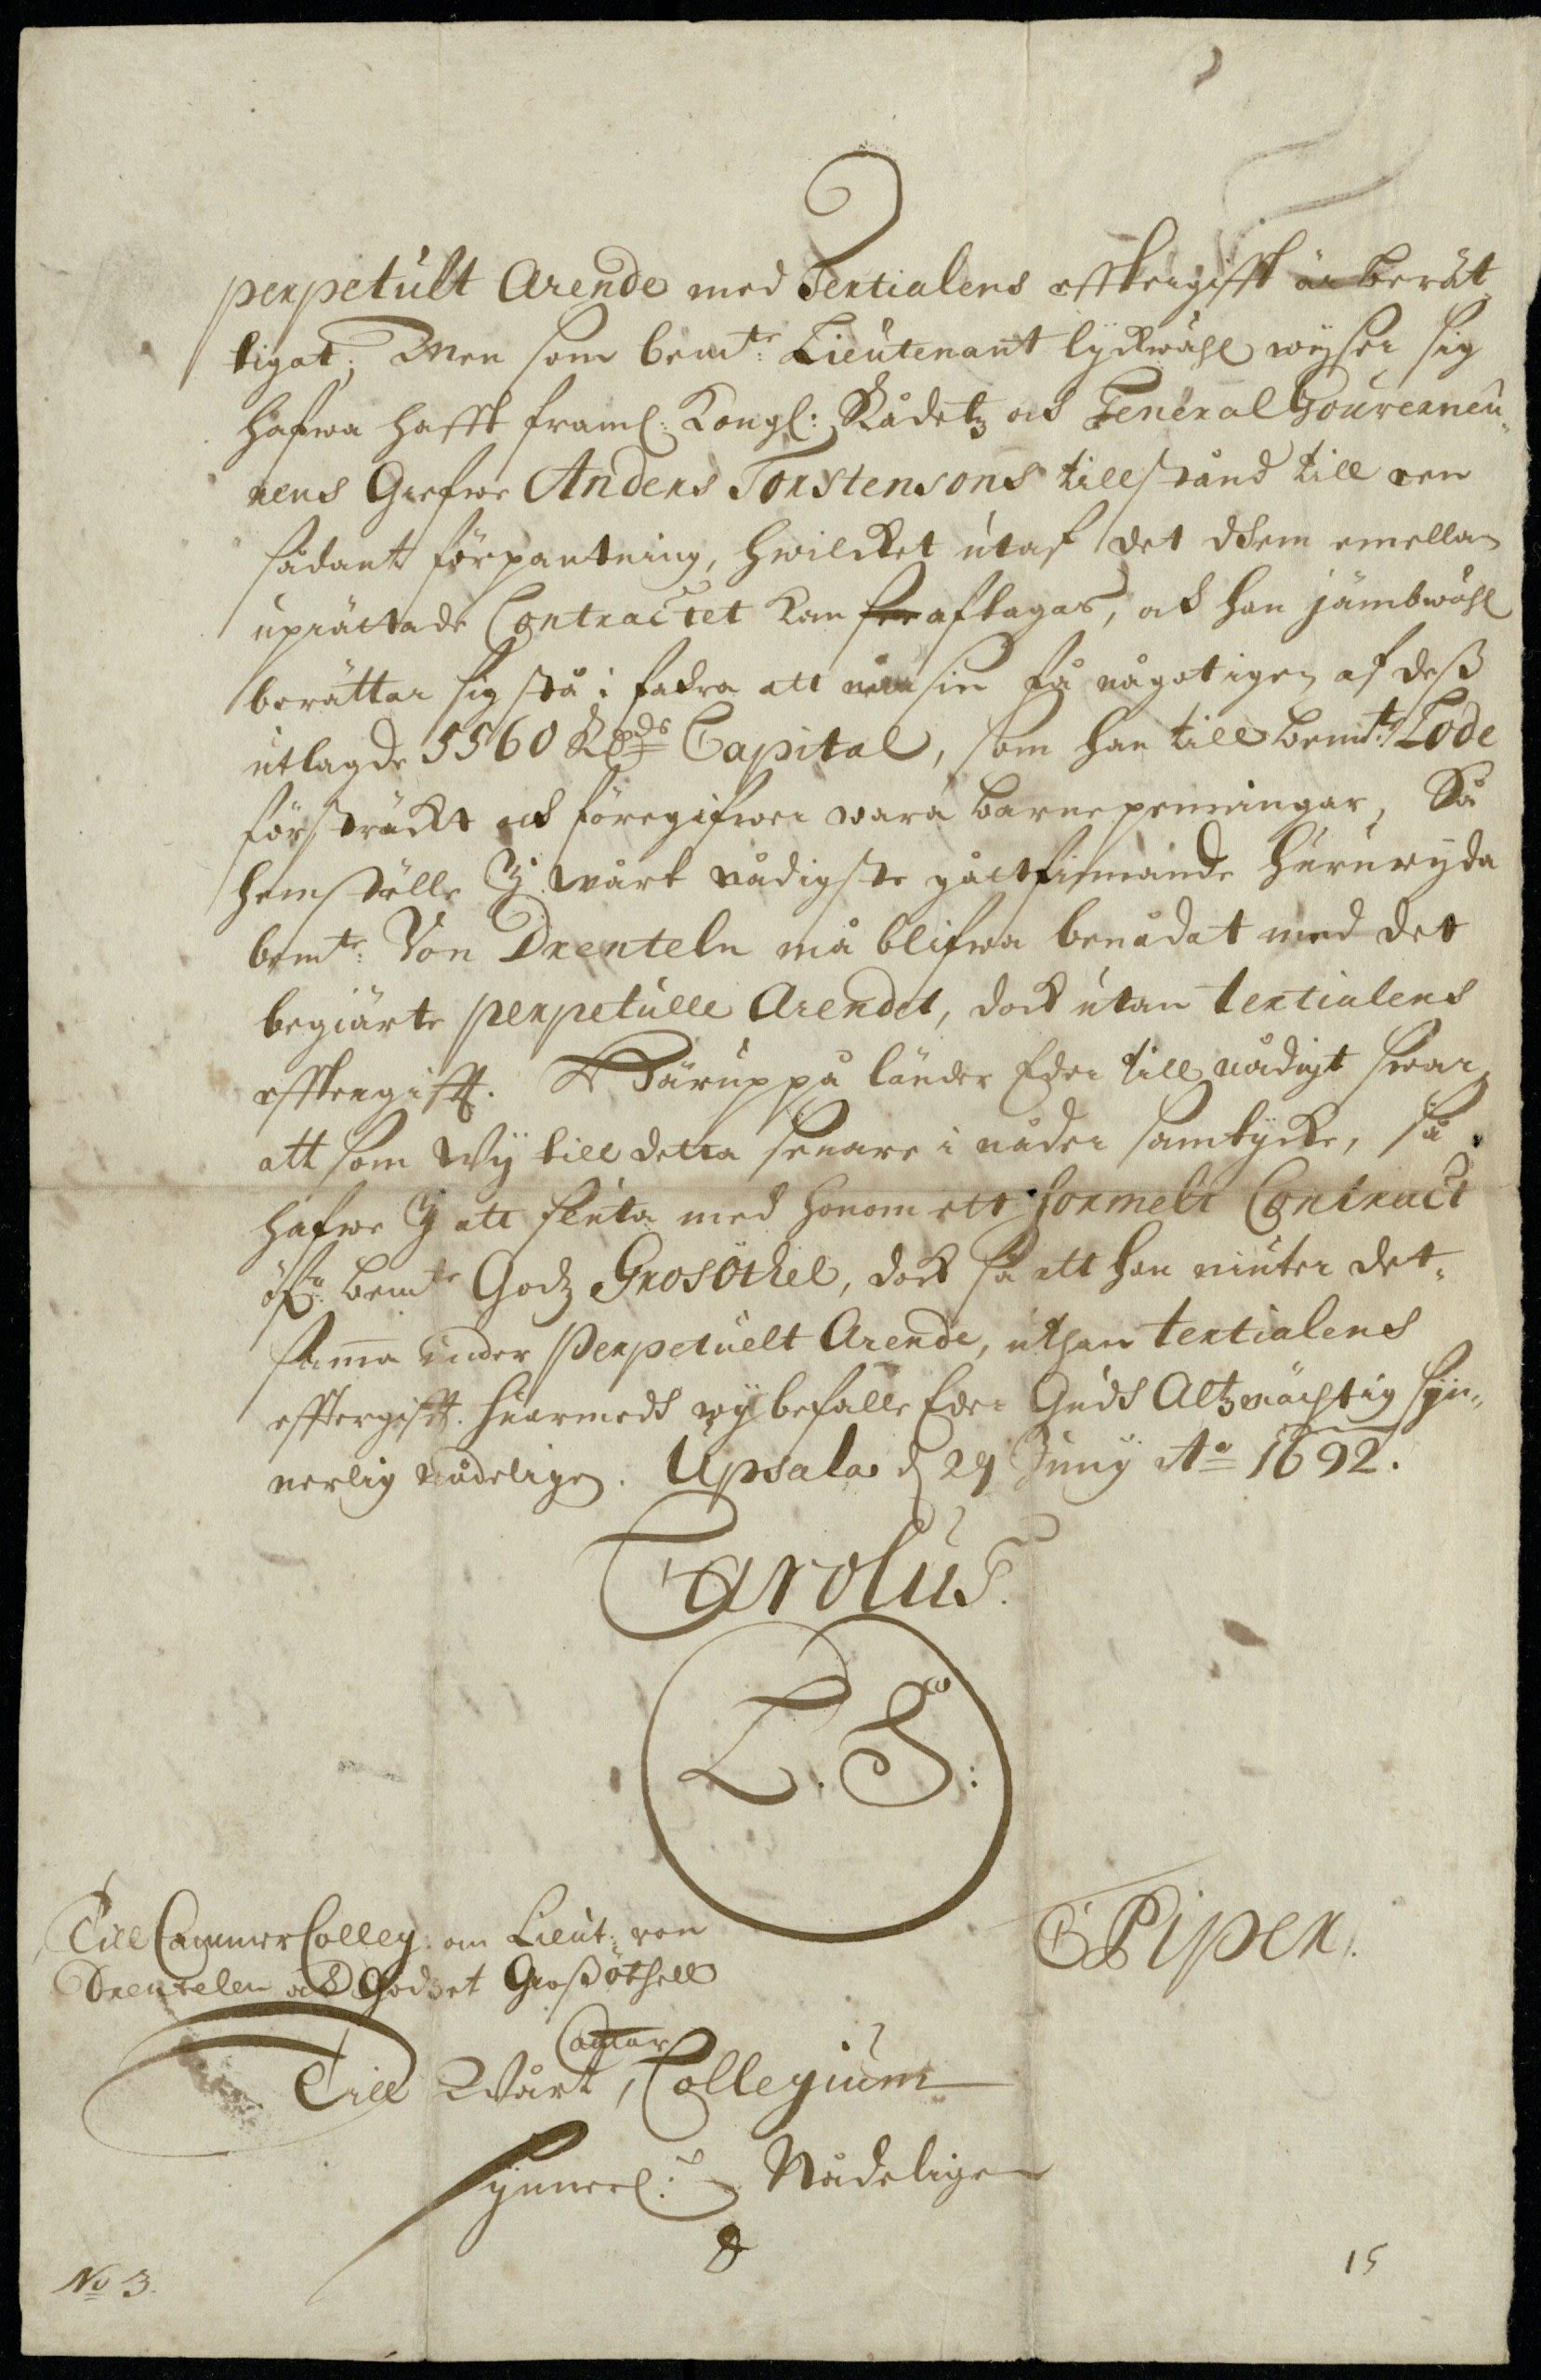 perpetuelt Arende med Tertialens efftergifft är berät
tigat; Men som bemte: Lieutenant lyckwähl wijser sig
hafwa hafft framl: Kongl: Rådetz och General Gouverneu-
rens Grefwe Anders Torstensons tillstånd till een
sådant förpantning, hwilcket utaf det dhem emellan
uprättade Contractet kan aftagas, och han jämbwähl
berättar sig stå i fahra att nånsin få något igen af dess
utlagde 5560 Rdrs Capital, som han till bemte: Lode
försträckt och föregifwer wara barnepenningar, Så
hemställe I wårt nådigste gåttfinnande häruwijda
bemte: Von Drenteln må blifwa benådat med det
begiärte perpetuelle Arendet, dock utan tertialens
efftergifft. Häruppå länder Eder till nådigt swar,
att som Wij till detta senare i nåder samtycke, så
hafwe I att sluta med honom ett formelt Contract
öfr. bemte Godz Grosöthel, dock så att han niuter det-
samma under Perpetuelt Arende, uthan tertialens
effterg ifft. Hiermedh wij befalle Eder Gudh Altzmächtig syn-
nerlig nådeligen. Upsala d 29 Junij Ao 1692.
Carolus.
L. S:
C Piper.
Till Cammer Colleg: om Lieut: von
Drentelen och Godzet Grossöthell
Till Wårt Cammar Collegium
Synnerl: Nådeligen
No 3.
15